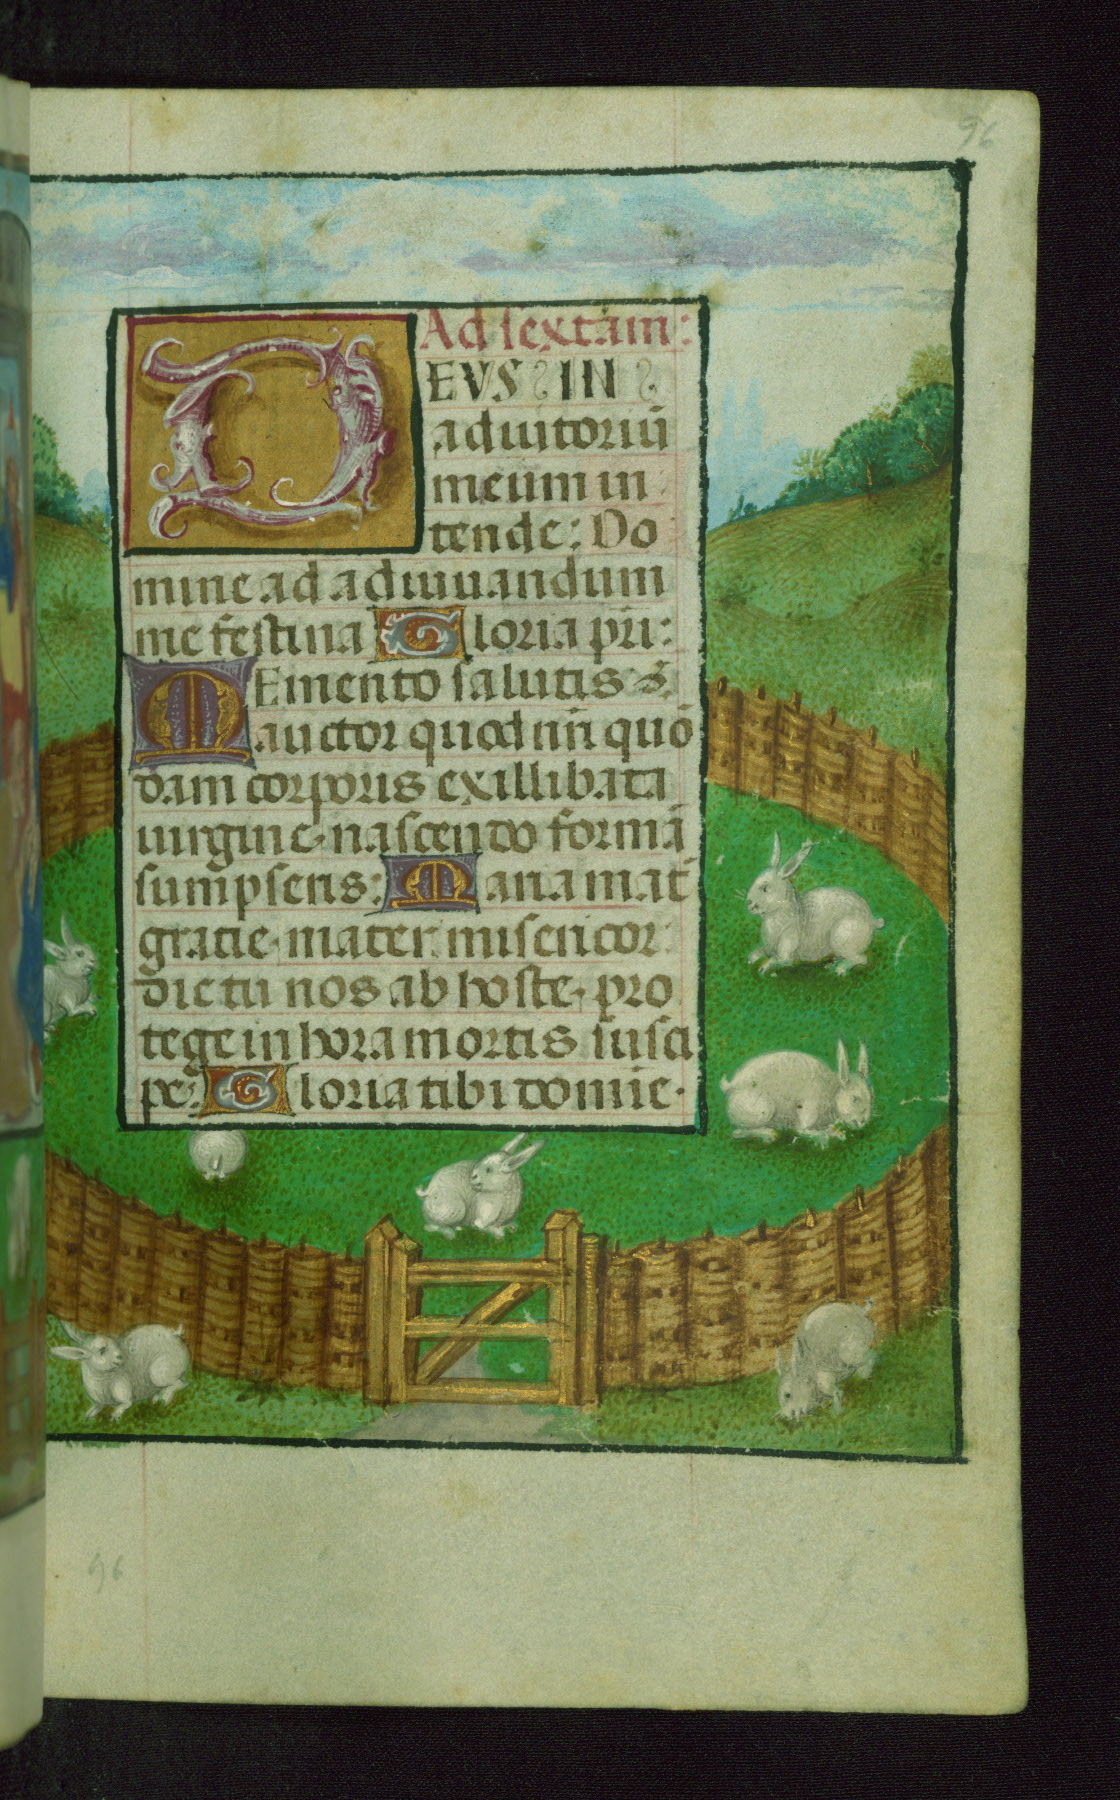 96
Ad sextam:
DEVS IN
adiutoriū
meum in
tende: Do
mine ad adiuuandum
me festina Gloria pr̄i:
Memento salutis
auctor quod nr̄i quō
dam corporis ex illibata
uirgine nascendo formā
sumpseris: Maria mat̄
gratie mater misericor
die tu nos ab hoste pro
tege in hora mortis susci
pe: Gloria tibi domīe.
96